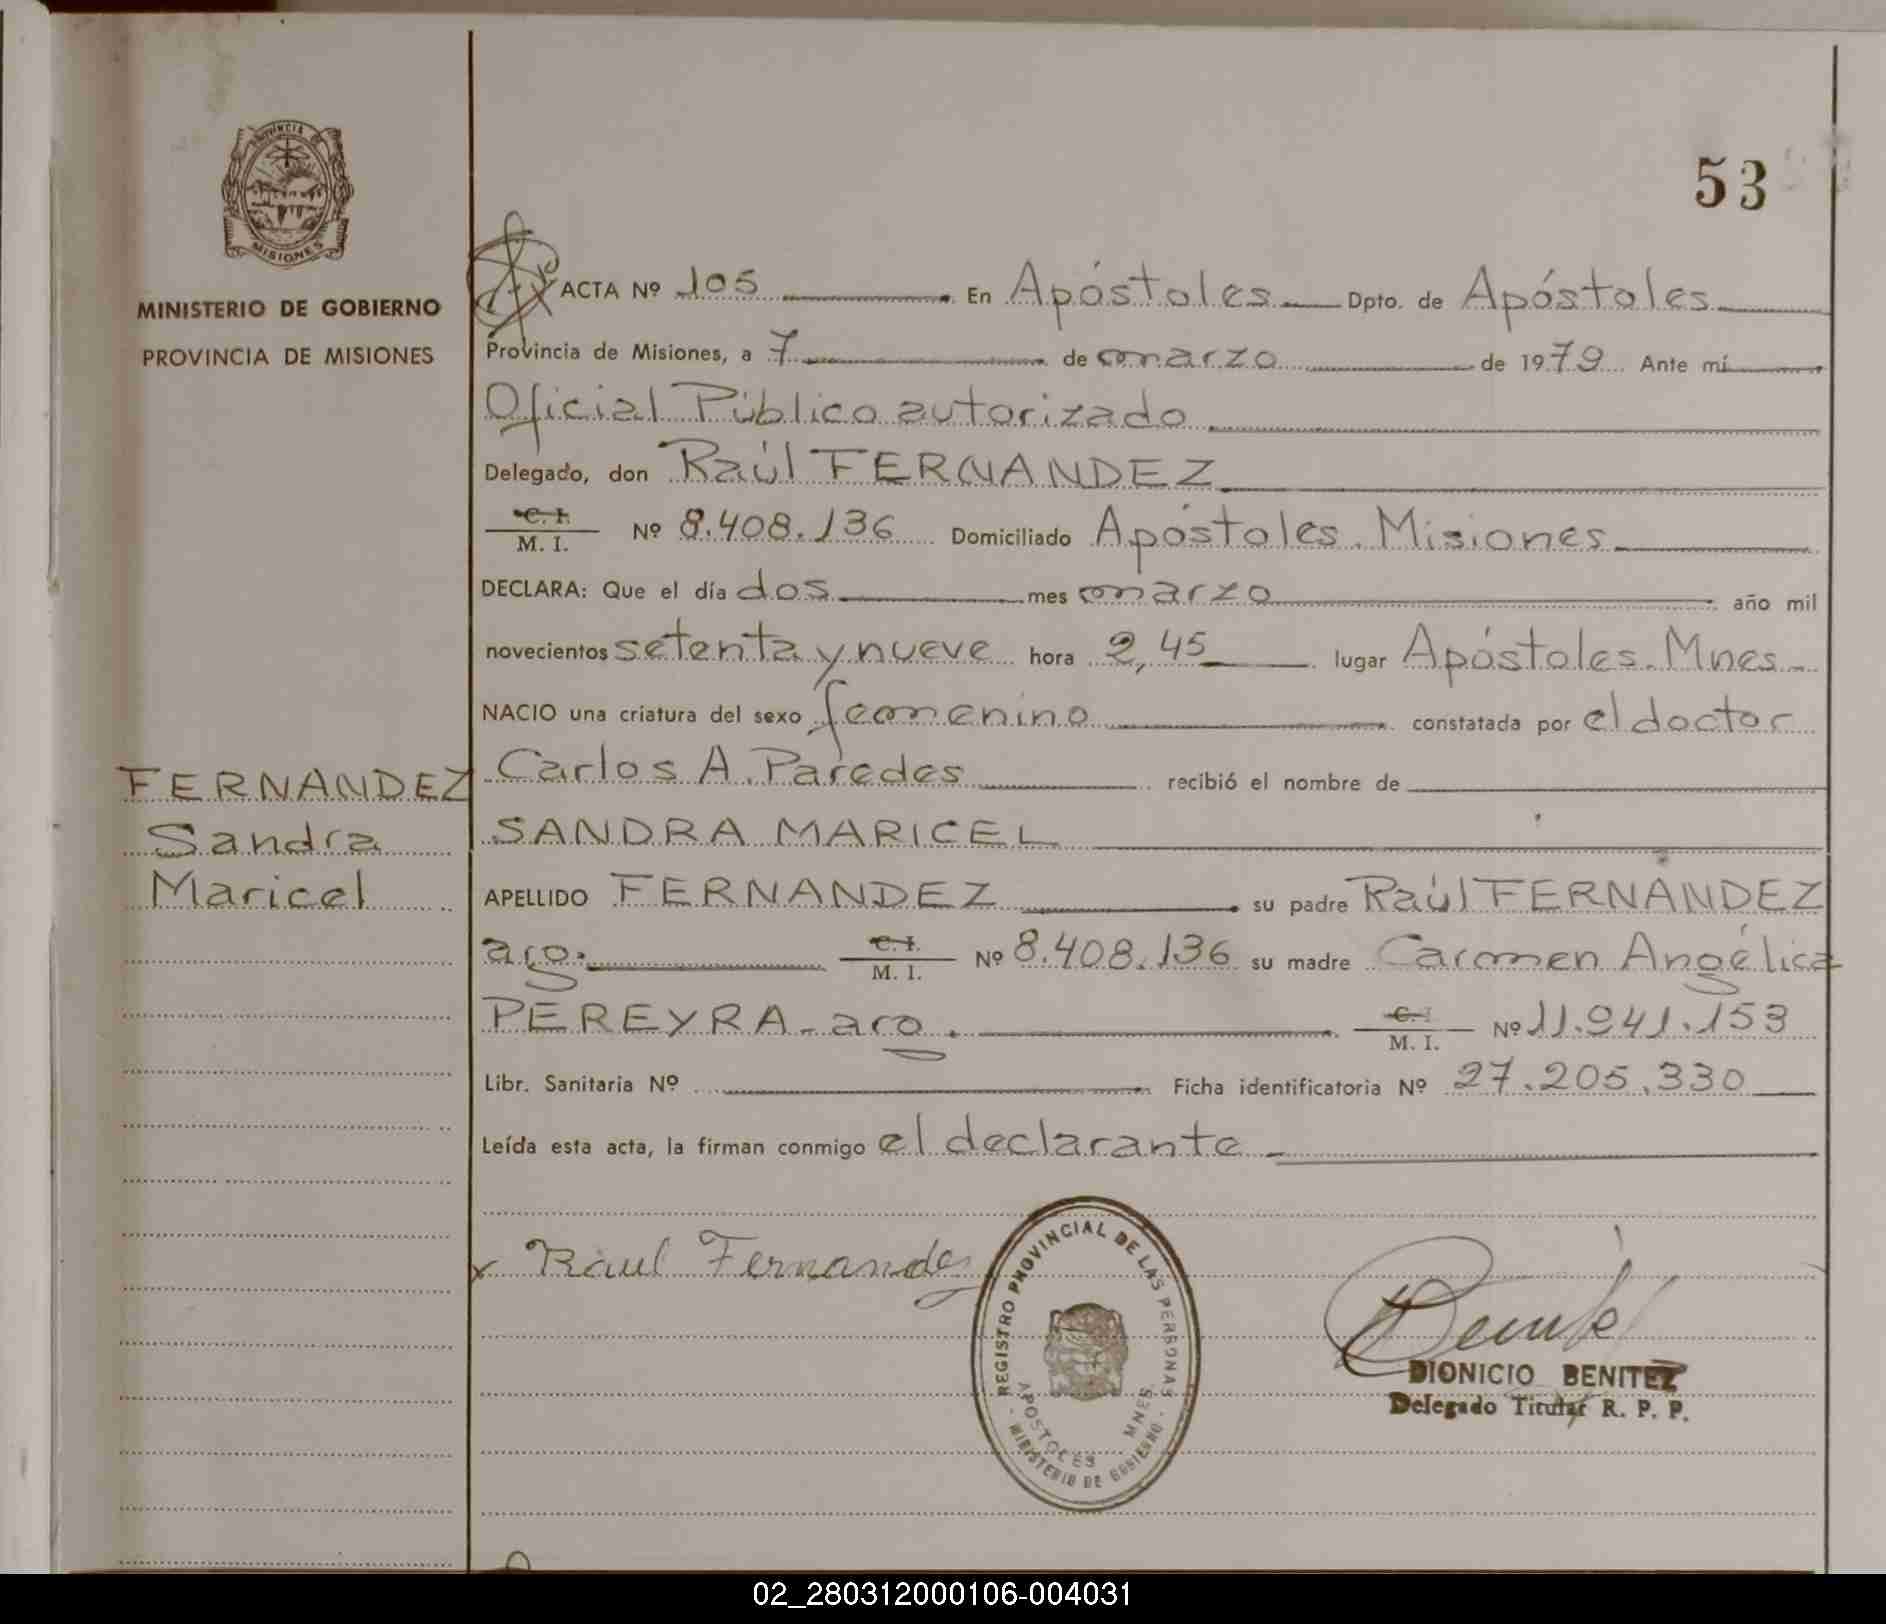 PROVINCIA DE
MISIONES
MINISTERIO DE GOBIERNO
PROVINCIA DE MISIONES
53
ACTA Nº 105 En Apóstoles Dpto. de Apóstoles
Provincia de Misiones, a 7 de marzo de 1979 Ante mí
Oficial Público autorizado
Delegado, don Raúl FERNANDEZ
C. I.
M. I. Nº 8.408.136 Domiciliado Apóstoles. Misiones
DECLARA: Que el día dos mes marzo año mil
novecientos setenta y nueve hora 2,45 lugar Apóstoles. Mnes
NACIO una criatura del sexo femenino constatada por el doctor
Carlos A. Paredes recibió el nombre de
SANDRA MARICEL
APELLIDO FERNANDEZ su padre Raúl FERNANDEZ
arg. C. I. M. I. Nº 8.408.136 su madre Carmen Angélica
PEREYRA - arg. C. I. M. I. Nº 11.941.153
Libr. Sanitaria Nº Ficha identificatoria Nº 27.205.330
Leída esta acta, la firman conmigo el declarante
FERNANDEZ
Sandra
Maricel
x Raul Fernandez
REGISTRO PROVINCIAL DE LAS PERSONAS
APOSTOLES MNES.
- MINISTERIO DE GOBIERNO -
DIONICIO BENITEZ
Delegado Titular R. P. P.
02_280312000106-004031